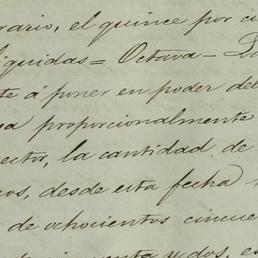 rario, el quince por ci
iquidas = Octava = La
te á poner en poder del
sa proporcionalmente
ector, la cantidad de
os, desde esta fecha
de ochocientos cincue
y dos, e